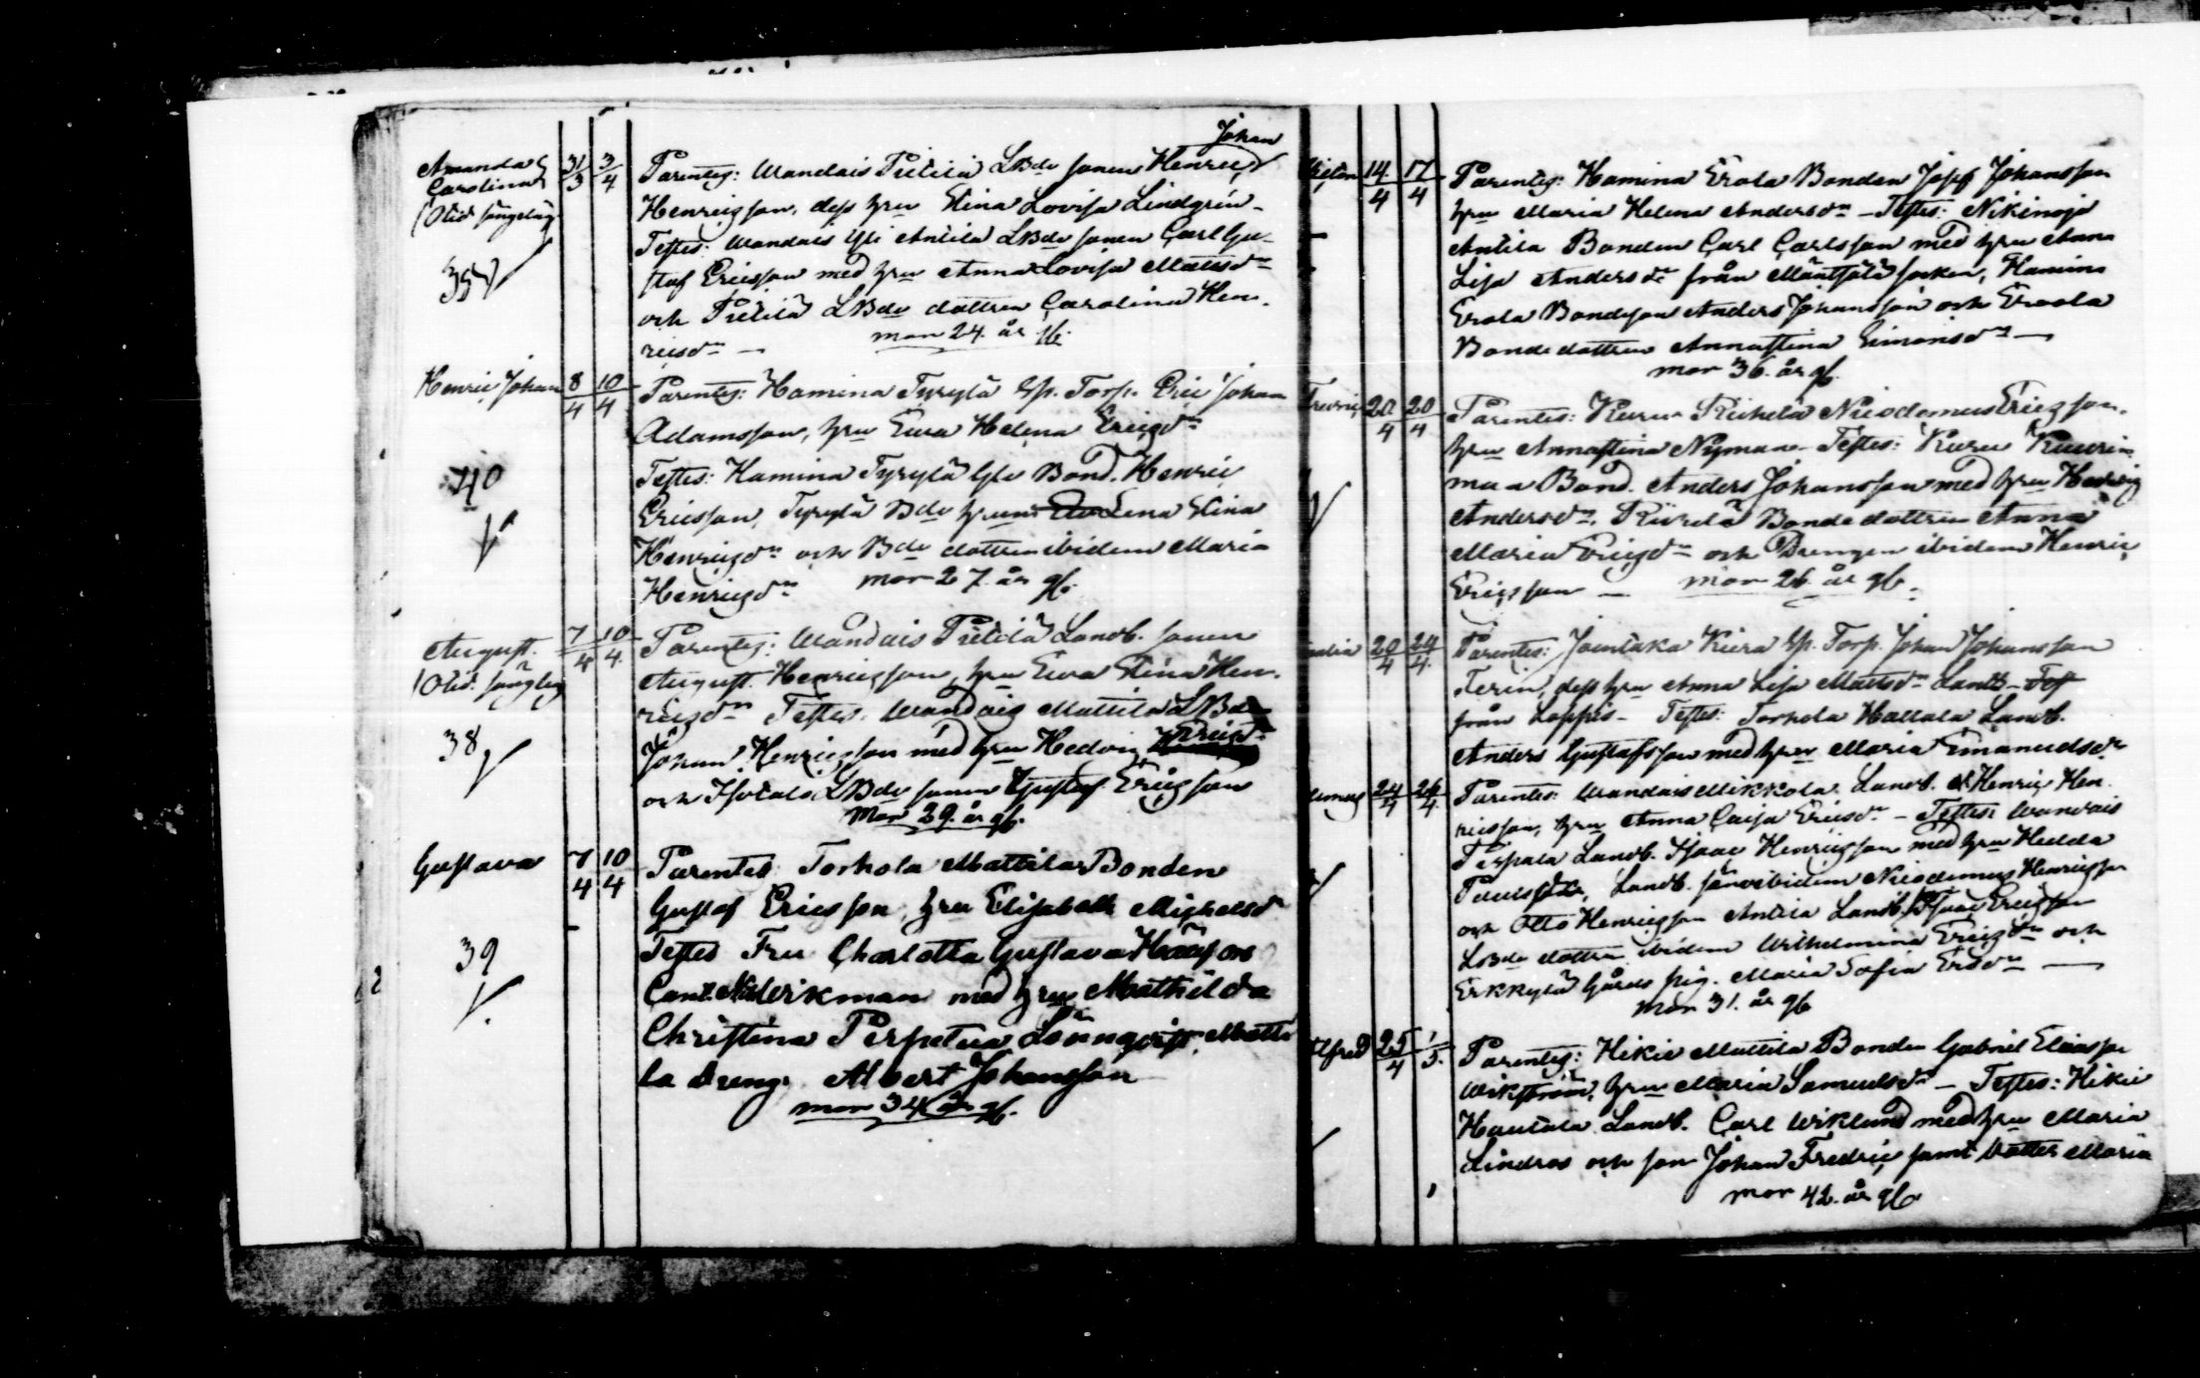 Johan
Amanda Carolina 31/3 3/4 Parentes: Wandais Pietilä LBde sonen Henric
Henricsson, dess hru Stina Lovisa Lindgrén -
Testes: Wandais Yli Antila LBde sonen Carl Gu-
staf Ericsson med hru Anna Lovisa Mattsdr
35
och Pietilä LBde dottren Carolina Hen-
ricsdr — mor 24. år gl.
Henric Johan 8/4 10/4 Parentes: Hamina Tyrylä Torp. Eric Johan
Adamsson, hru Eva Helena Ericsdr
Testes: Hamina Tyrylä Bond. Henric
40
Ericsson, Tyrylä Bde hrun Lena Stina
Henricsdr och Bde dottren ibidem Maria
Henricsdr mor 27. år gl.
August. 7/4 10/4 Parentes: Wåndais Pietilä Landb. sonen
August Henricsson, hru Eva Stina Hen-
ricsdr Testes: Wandais Mattila LBde
38
Johan Henricsson med hru Hedvig Ericsdr
och LBde sonen Gustaf Ericsson
Mor 29. år gl.
Gustava 7/4 10/4 Parentes Torhola Mattilas Bonden
Gustaf Ericsson, hru Elisabeth Michelsdr
Testes Fru Charlotta Gustava
39
Wikman med hru Mathilda
Christina Perpetua Lönnqvist, Matti
la dreng. Albert Johansson
mor 34 år gl.
14/4 17/4 Parentes: Hamina Erola Bonden Josef Johansson
hru Maria Helena Andersdr — Testes: Nikinoja
Antila Bonden Carl Carlsson med hru Anna
Lisa Andersdr från Mäntsälä socken, Hamina
Erola Bondeson Anders Johansson och Eroola
Bondedottren Annastina Simonsdr —
mor 36. år gl.
Fredric 20/4 20/4 Parentes: Kuru Nicodemus Ericsson,
hru Annastina Nyman - Testes: Kuru
maa Bond. Anders Johansson med hru Hedvig
Andersdr, Bondedottren Anna
Maria Ericsdr och Drengen ibidem Henric
Ericsson — mor 26. år gl.
20/4 24/4 Parentes: Torp. Johan Johansson
Terin, dess hru Anna Lisa Mattsdr
från Loppis - Testes: Torhola Hattala Landb.
Anders Gustafsson med hru Maria Emanuelsdr
24/4 26/4 Parentes: Wandais Mikkola Landb. Henric Hen-
ricsson, hru Anna Caisa Ericsdr — Testes: Wandais
Landb. Isaac Henricsson med hru Hedda
Landb. ibidem Nicodemus Henricsson
och Otto Henricsson Antila Landb. Isaac Ericsson
LBde dottren ibidem Wilhelmina Ericsdr och
Erkkylä Gårds pig. Maria Sofia —
mor 31. år gl
Alfred 25/4 1/5. Parentes: Hikiä Mattila Bonden Gabriel Eliasson
Wikström, hru Maria Samuelsdr — Testes: Hikiä
Hautala Landb. Carl Wiklund med hru Maria
Lindros och son Johan Fredric samt dotter Maria
mor 42. år gl